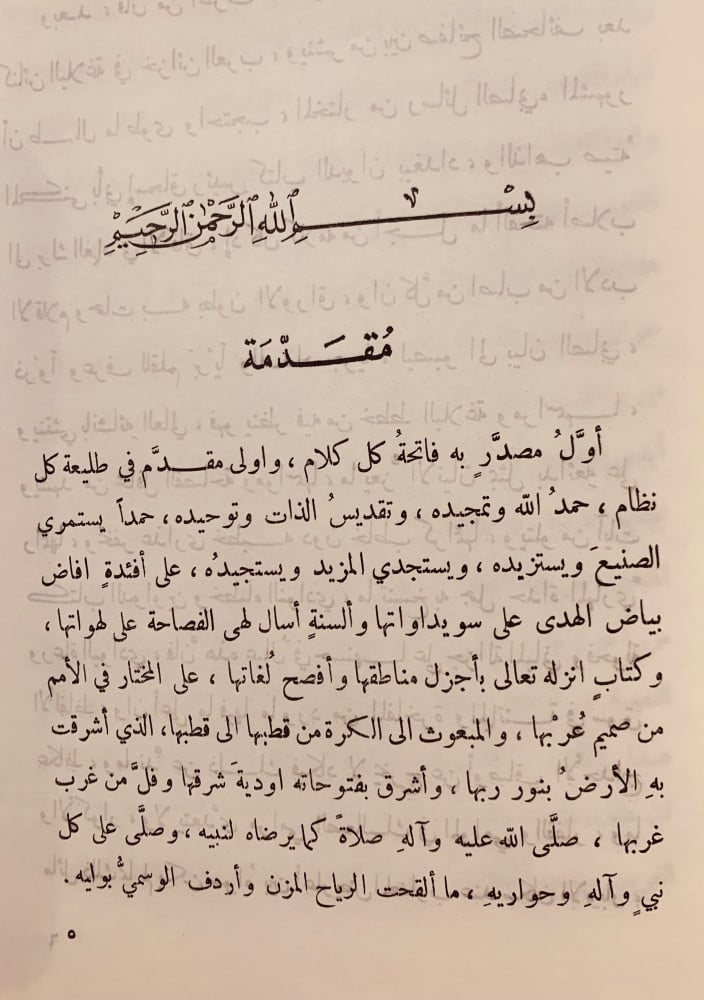 بِسْمِ اللهِ الرَّحْمٰنِ الرَّحِيْمِ
مُقَدِّمَة
أوَّلُ مصدَّرٍ به فاتحةُ كل كلام ، واولى مقدَّم في طليعة كل
نظام ، حمدُ الله وتمجيده ، وتقديسُ الذات وتوحيده ، حمداً يستمري
الصنيعَ ويستزيده ، ويستجدي المزيد ويستجيدُه ، على أفئدةٍ افاض
بياض الهدى على سويداواتها وألسنةٍ أسال لهى الفصاحة على لهواتها ،
وكتابٍ انزله تعالى بأجزل مناطقها وأفصح لُغاتها ، على المختار في الأمم
من صميم عُرْبها ، والمبعوث الى الكرة من قطبها الى قطبها، الذي أشرقت
بهِ الأرضُ بنور ربها ، وأشرق بفتوحاته اوديةَ شرقها وفلَّ من غرب
غربها ، صلَّى الله عليه وآلهِ صلاةً كما يرضاه لنبيه ، وصلَّى على كل
نبيٍ وآلهِ وحواريهِ ، ما ألقحت الرياح المزن وأردف الوسميُّ بوليه .
٥